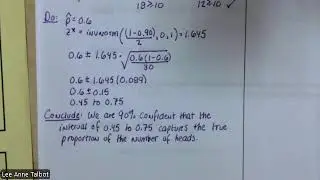 18≥10 12≥10 ✓
Do: p̂ = 0.6
z* = invnorm((1-0.90)/2, 0, 1) = 1.645
0.6 ± 1.645 · √(0.6(1-0.6)/30)
0.6 ± 1.645 (0.089)
0.6 ± 0.15
0.45 to 0.75
Conclude: We are 90% confident that the
interval of 0.45 to 0.75 captures the true
proportion of the number of heads.
Lee Anne Talbot